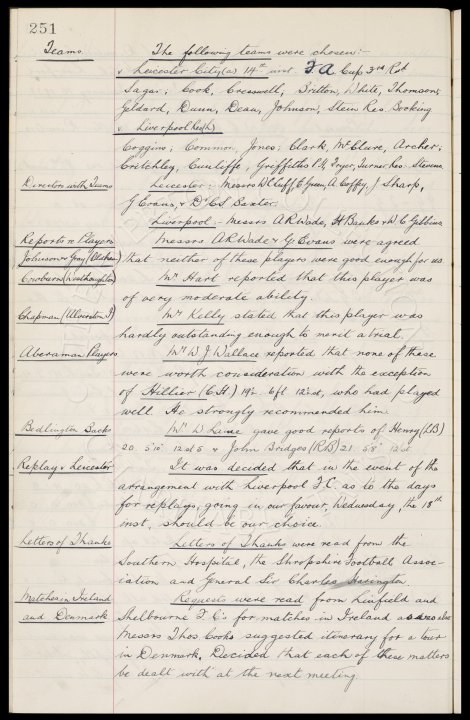 251
Teams. The following teams were chosen:-
v Leicester City (a) 14th inst. F A Cup 3rd Rd
Sagar; Cook, Cresswell, Britton, White, Thomson;
Geldard, Dunn, Dean, Johnson, Stein Res. Bocking
v. Liverpool Res (h)
Coggins; Common, Jones; Clark, McClure, Archer;
Critchley, Cunliffe, Griffiths P.H., Fryer, Turner, Res: Stevens
Directors with Teams Leicester: Messrs W C Cuff, E Green, A Coffey, J Sharp,
G Evans, & Dr C S Baxter.
Liverpool - Messrs A R Wade, H Banks & W C Gibbins
Reports on Players Messrs A R Wade & G Evans were agreed
Johnson & Gray (Oldham) that neither of these players were good enough for us
Cowburn (Westhoughton) Mr Hart reported that this player was
of very moderate ability.
Chapman (Ulverston T.) Mr Kelly stated that this player was
hardly outstanding enough to merit a trial.
Aberaman Players Mr W J Wallace reported that none of these
were worth consideration with the exception
of Hillier (C.H.) 19 6ft 12st, who had played
well He strongly recommended him
Bedlington Backs Mr W gave good reports of Henry (LB)
20. 5'10" 12st 5 & John Bridges (RB) 21. 5'8" 12st
Replay v Leicester It was decided that in the event of the
arrangement with Liverpool F.C. as to the days
for replays, going in our favour, Wednesday, the 18th
inst, should be our choice.
Letters of Thanks Letters of Thanks were read from the
Southern Hospital, the Shropshire Football Assoc-
iation and General Sir Charles Harington.
Matches in Ireland Requests were read from Linfield and
and Denmark Shelbourne F.C's for matches in Ireland
Messrs Thos Cooks suggested itinerary for a tour
in Denmark. Decided that each of these matters
be dealt with at the next meeting.